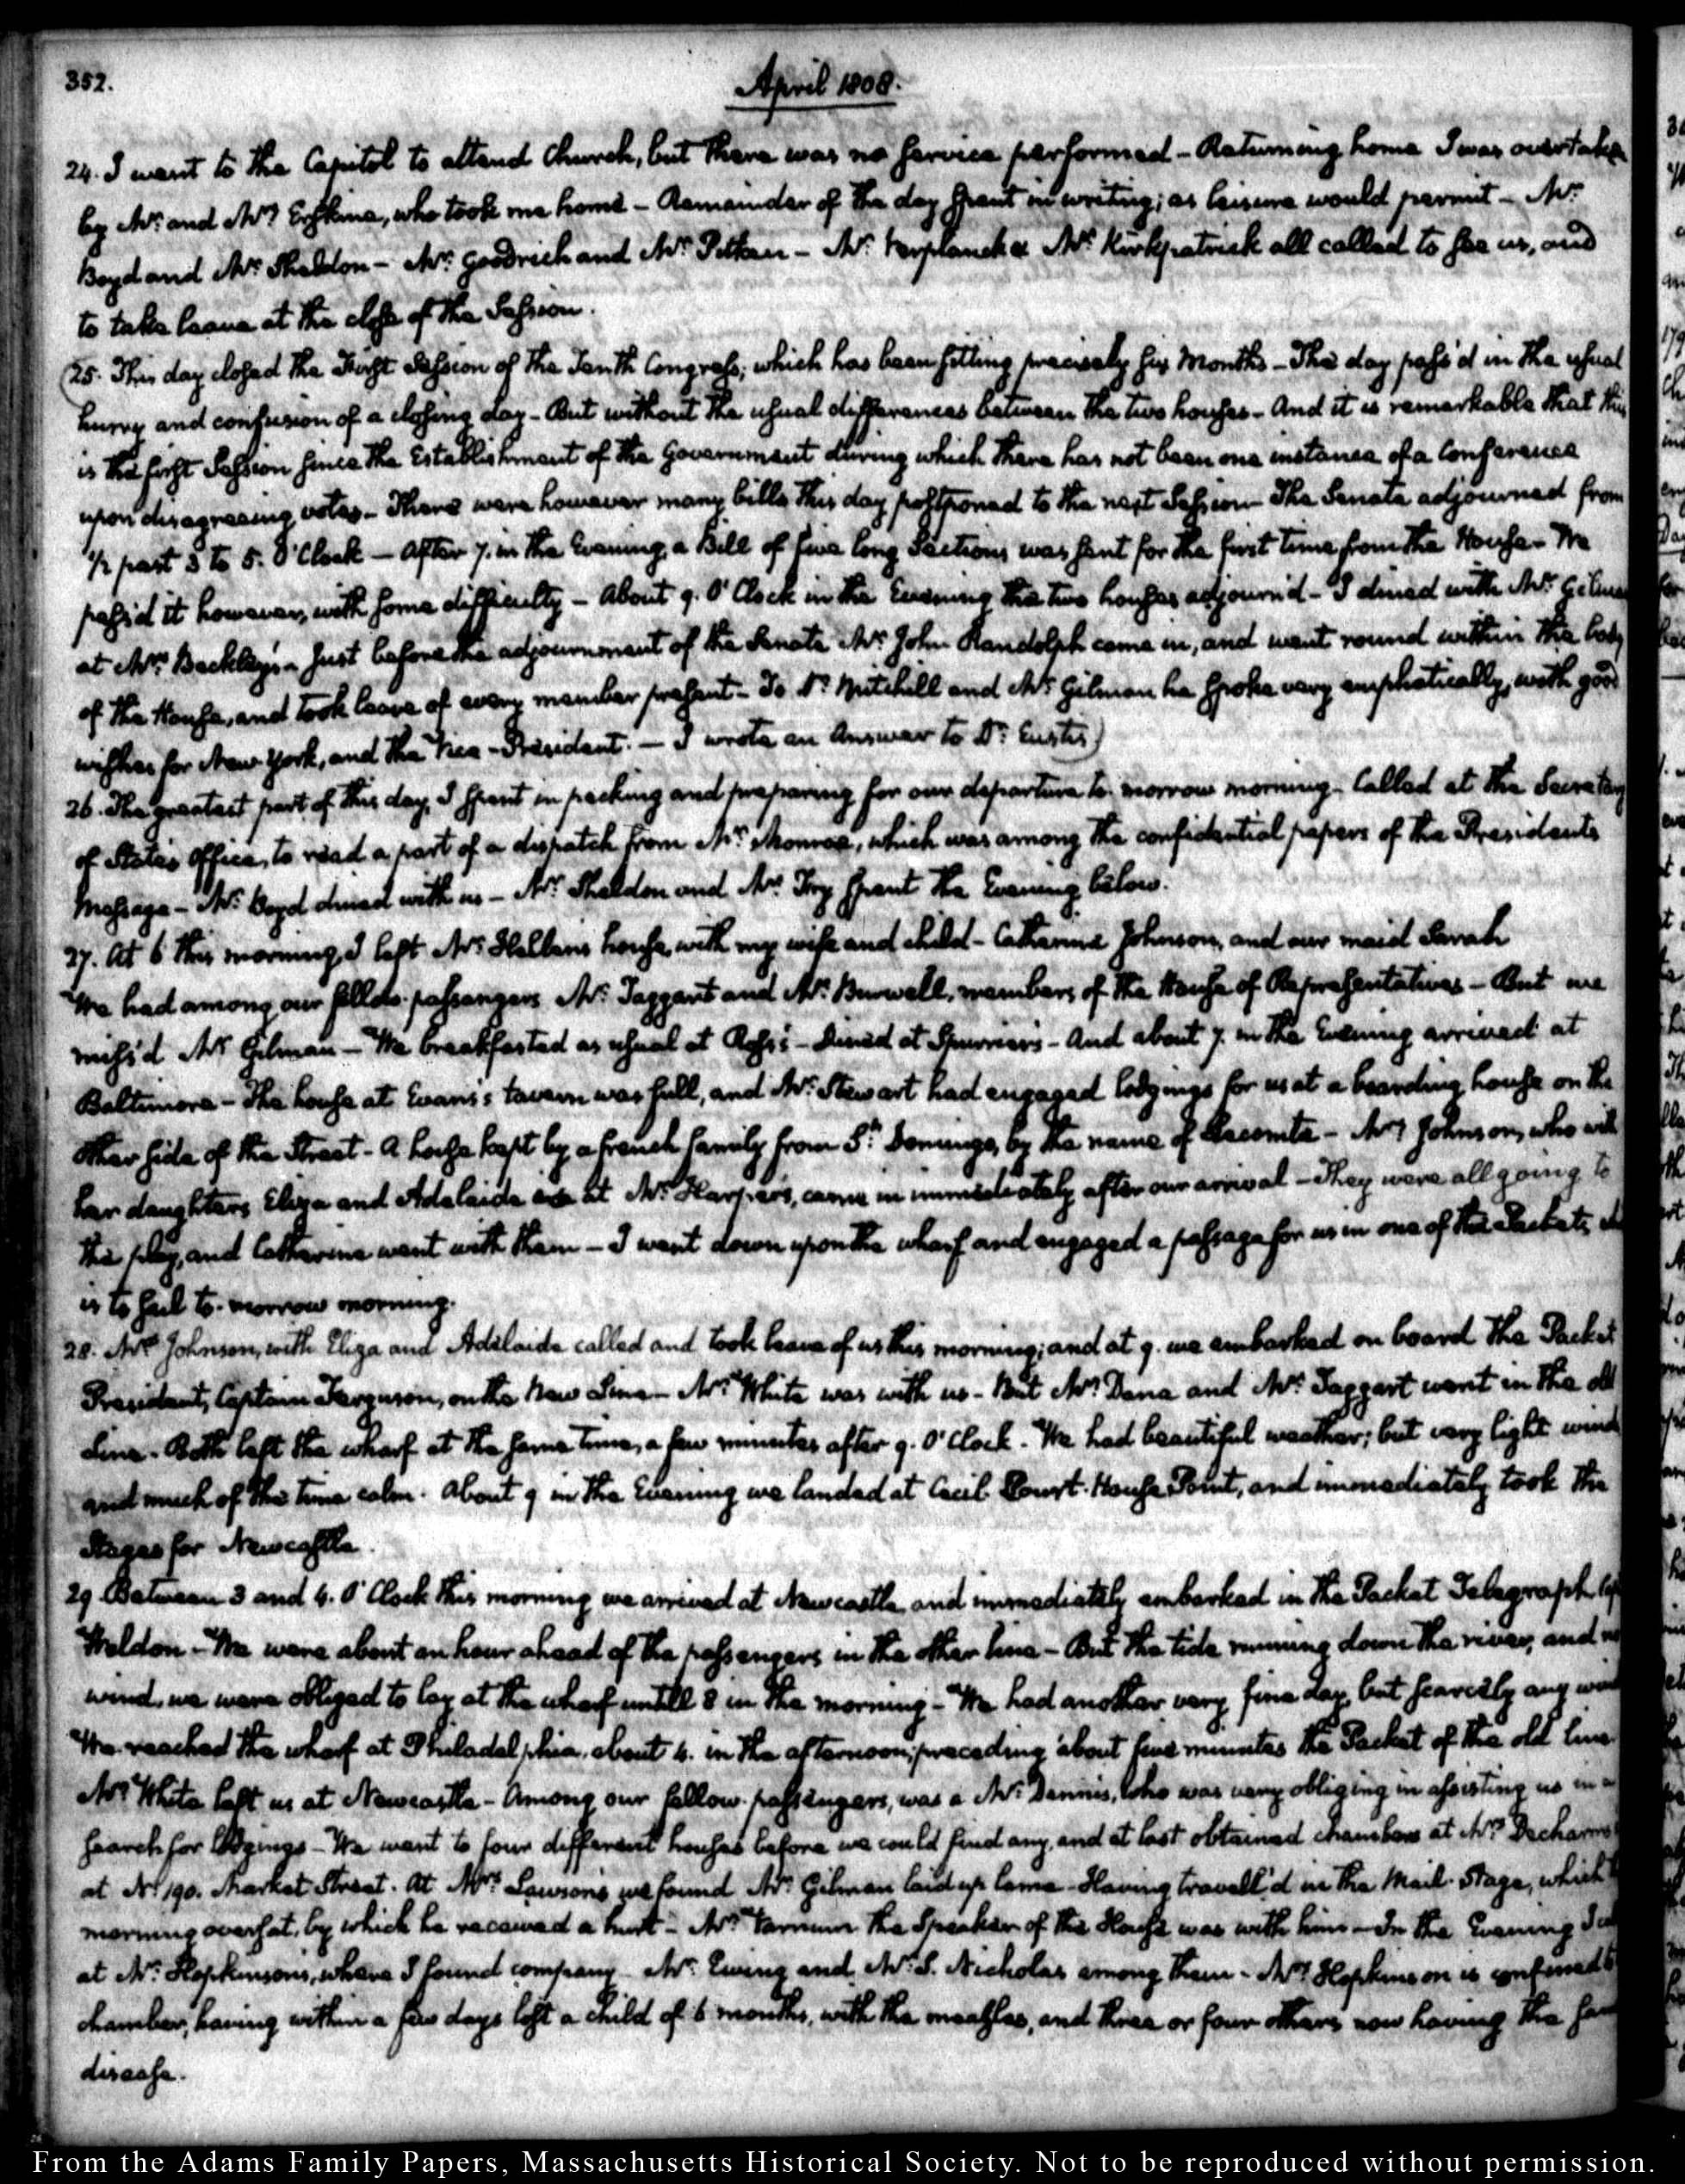 352.
April 1808.
24. I went to the Capitol to attend Church, but there was no service performed - Returning home I was overtaken
by Mr. and Mrs. Erskine, who took me home - Remainder of the day spent in writing; as leisure would permit - Mr.
Boyd and Mr. Sheldon - Mr. Goodrich and Mr. Pitkin - Mr. Verplanck & Mr. Kirkpatrick all called to see us, and
to take leave at the close of the Session.
(25. This day closed the First Session of the Tenth Congress; which has been sitting precisely six Months - The day pass'd in the usual
hurry and confusion of a closing day - But without the usual differences between the two houses - And it is remarkable that this
is the first Session since the Establishment of the Government during which there has not been one instance of a Conference
upon disagreeing votes - There were however many bills this day postponed to the next Session - The Senate adjourned from
1/2 past 3 to 5. O'Clock - After 7. in the Evening, a Bill of five long Sections was sent for the first time from the House - We
pass'd it however, with some difficulty - About 9. O'Clock in the Evening the two houses adjourn'd - I dined with Mr. Gilman
at Mrs. Beckley's - Just before the adjournment of the Senate Mr. John Randolph came in, and went round within the body
of the House, and took leave of every member present - To Dr. Mitchill and Mr. Gilman he spoke very emphatically, with good
wishes for New-York, and the Vice-President. - I wrote an Answer to Dr. Eustis)
26. The greatest part of this day, I spent in packing and preparing for our departure to-morrow morning - Called at the Secretary
of State's Office, to read a part of a dispatch from Mr. Monroe, which was among the confidential papers of the Presidents
Message - Mr. Boyd dined with us - Mr. Sheldon and Mr. Ivy spent the Evening below.
27. At 6 this morning, I left Mr. Hellen's house, with my wife and child - Catherine Johnson, and our maid Sarah
We had among our fellow-passengers Mr. Taggart and Mr. Burwell, members of the House of Representatives - But we
miss'd Mr. Gilman - We breakfasted as usual at Ross's - Dined at Spurrier's - And about 7. in the Evening arrived at
Baltimore - The house at Evans's tavern was full, and Mr. Stewart had engaged lodgings for us at a boarding house on the
other side of the Street - A house kept by a french family from St. Domingo, by the name of Lacombe - Mrs. Johnson, who with
her daughters Eliza and Adelaide are at Mr. Harper's, came in immediately after our arrival - They were all going to
the play, and Catherine went with them - I went down upon the wharf and engaged a passage for us in one of the Packets, which
is to sail to-morrow morning.
28. Mrs. Johnson, with Eliza and Adelaide called and took leave of us this morning; and at 9. we embarked on board the Packet
President, Captain Ferguson, on the New Line - Mrs. White was with us - But Mr. Dana and Mr. Taggart went in the old
Line - Both left the wharf at the same time, a few minutes after 9. O'Clock. We had beautiful weather; but very light wind
and much of the time calm. About 9 in the Evening we landed at Cecil Court-House Point, and immediately took the
Stages for Newcastle.
29. Between 3 and 4. O'Clock this morning we arrived at Newcastle and immediately embarked in the Packet Telegraph
Weldon - We were about an hour ahead of the passengers in the other line - But the tide running down the river, and no
wind, we were obliged to lay at the wharf untill 8 in the morning - We had another very fine day, but scarcely any wind
We reached the wharf at Philadelphia, about 4. in the afternoon; preceding about five minutes the Packet of the old line.
Mrs. White left us at Newcastle - Among our fellow-passengers, was a Mr. Dennis, who was very obliging in assisting us in a
search for lodgings - We went to four different houses before we could find any, and at last obtained chambers at Mrs. Decharms
at No. 190. Market Street. At Mrs. Lawson's we found Mr. Gilman laid up lame - Having travell'd in the Mail-Stage, which
morning overset, by which he received a hurt - Mr. Varnum the Speaker of the House was with him - In the Evening I
at Mr. Hopkinson's, where I found company - Mr. Ewing and Mr. S. Nicholas among them - Mrs. Hopkinson is confined
chamber, having within a few days lost a child of 6 months, with the measles, and three or four others now having the same
disease.
From the Adams Family Papers, Massachusetts Historical Society. Not to be reproduced without permission.